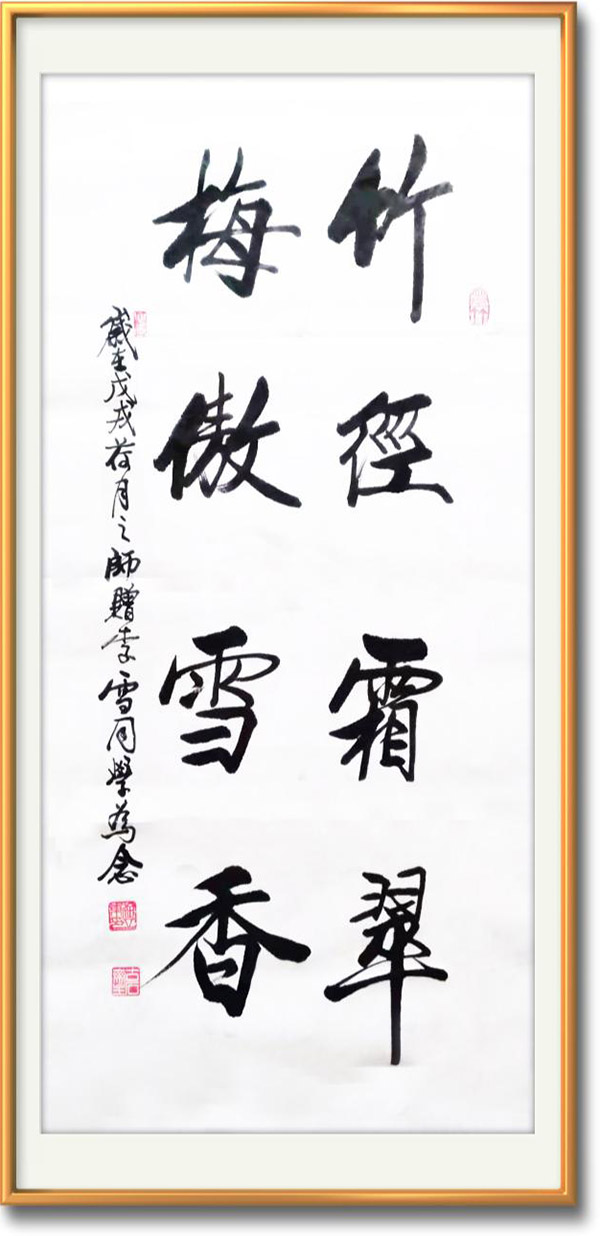 竹徑霜翠
梅傲雪香
歲在戊戌荷月之師贈李雪同學為念